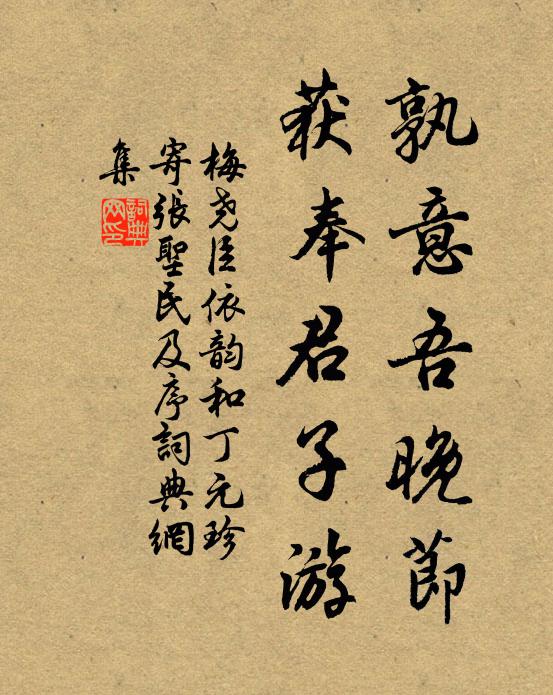 孰意吾晚節
获奉君子游
梅堯臣依韵和丁元珍
寄張聖民及序詞典網
集
詞典網印